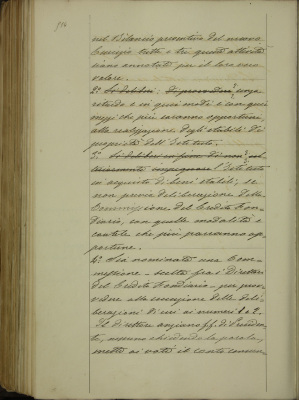 nel Bilancio preventivo del nuovo
Esercizio tutte e tre queste attività
siano annotate per il loro vero
valore.
2.° Si delibri: di provvedere, senza
ritardo e in quei modi e con quei
mezzi che più saranno opportuni,
alla realizzazione degli stabili di
proprietà dell'Istituto.
3.° Si delibri infine di non
impegnare l'Istituto
in acquisto di beni stabili, se
non previa deliberazione della
Commissione del Credito Fon-
diario, con quelle modalità e
cautele che più parranno op-
portune.
4.° Sia nominata una Com-
missione - scelta fra i Direttori
del Credito Fondiario - per prov-
vedere alla esecuzione delle deli-
berazioni di cui ai numeri 1 e 2.
Il direttore anziano ff. di Presiden-
te, nessuno chiedendo la parola,
mette ai voti il conto consun-